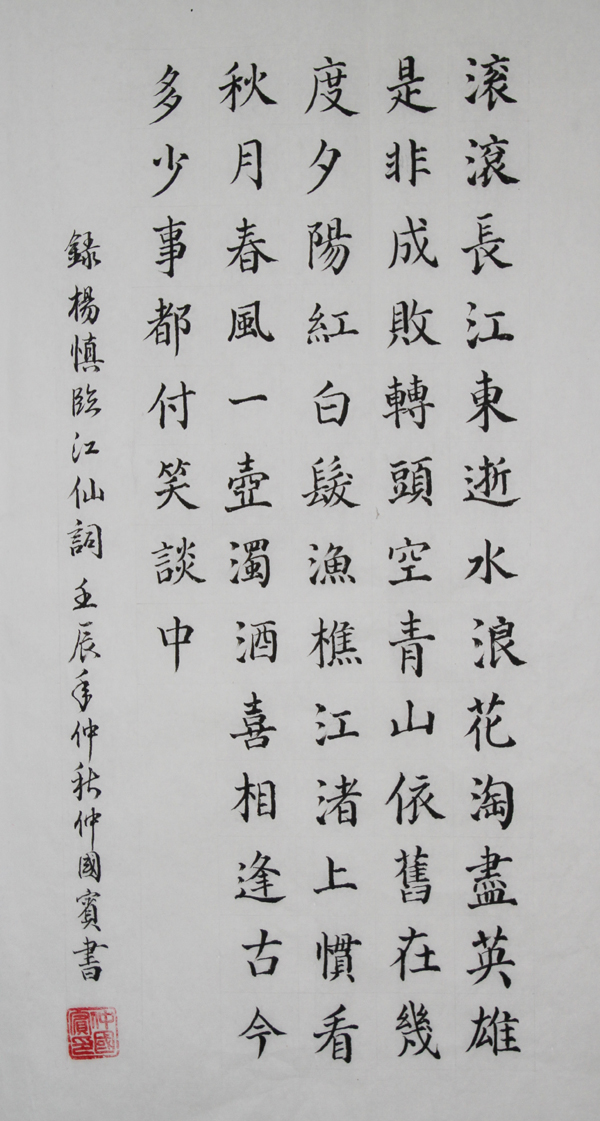 滚滾長江東逝水浪花淘盡英雄
是非成敗轉頭空青山依舊在幾
度夕陽紅白髮漁樵江渚上慣看
秋月春風一壺濁酒喜相逢古今
多少事都付笑談中
録楊慎臨江仙詞壬辰年仲秋仲國賓書
仲國賓印